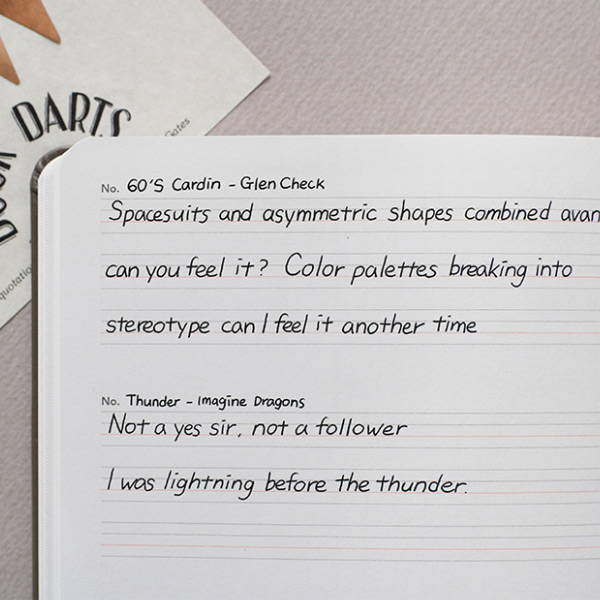 BOOK DARTS
No. 60'S Cardin - Glen Check
Spacesuits and asymmetric shapes combined avan
can you feel it? Color palettes breaking into
stereotype can I feel it another time
No. Thunder - Imagine Dragons
Not a yes sir, not a follower
I was lightning before the thunder.